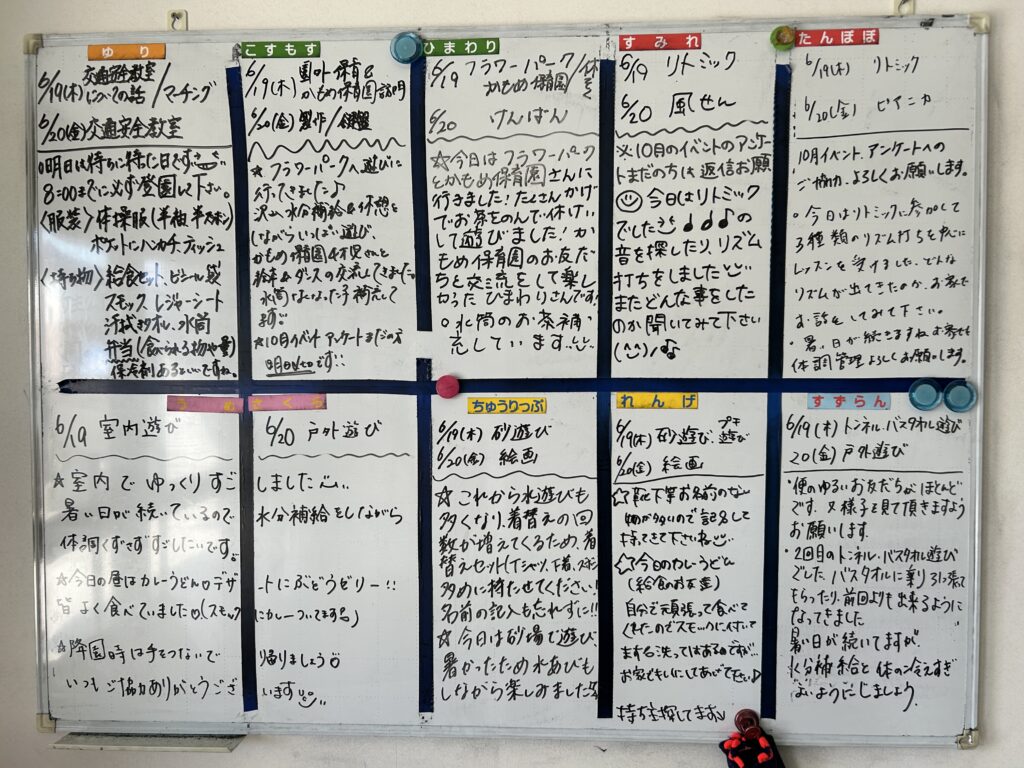 ゆり
6/19(木) 交通安全教室についての話 / マーチング
6/20(金) 交通安全教室
○明日は待ちに待った日です
8:00までに必ず登園して下さい。
〈服装〉体操服(半袖、半ズボン)
ポケットにハンカチ、ティッシュ
〈持ち物〉給食セット、ビニール袋
スモック、レジャーシート
汗拭きタオル、水筒
弁当(食べられる物や量)
保冷剤あるといいですね。
こすもす
6/19(木) 園外保育 かもめ保育園訪問
6/20(金) 製作/
☆フラワーパークへ遊びに
行ってきました♪
沢山水分補給&休憩を
しながらいっぱい遊び、
かもめ保育園4才児さんと
絵本&ダンスの交流してきました
水筒なくなった子補充して
ます
★10月イベントアンケートまだの方
明日〆切です!!
ひまわり
6/19 フラワーパーク かもめ保育園/
6/20 けんばん
☆今日はフラワーパーク
とかもめ保育園さんに
行きました!たくさんかけっこ
でお茶をのんで休けい
して遊びました!か
もめ保育園のお友だ
ちと交流をして楽し
かったひまわりさんです
○水筒のお茶補
充しています
すみれ
6/19 リトミック
6/20 風せん
※10月のイベントのアンケー
トまだのうちは返信お願
今日はリトミック
でした♩♩♩の
音を探したり、リズム
打ちをしました
またどんな事をした
のか聞いてみて下さい
たんぽぽ
6/19(木) リトミック
6/20(金) ピアニカ
10月イベント、アンケートへの
ご協力、よろしくお願いします。
○今日はリトミックに参加して
3種類のリズム打ちを中心に
レッスンを受けました。どんな
リズムが出てきたのか、お家で
お話をしてみて下さい。
・暑い日が続きますね お家でも
体調管理よろしくお願いします。
うめ さくら
6/19 室内遊び 6/20 戸外遊び
☆室内でゆっくりすご しました
暑い日が続いているので 水分補給をしながら
体調くずさずすごしたいです。
☆今日の昼はカレーうどん デザ ートにぶどうゼリー!!
皆よく食べていました (スモック にカレーついてます)
☆降園時は手をつないで 帰りましょう
いつもご協力ありがとうござ います
ちゅうりっぷ
6/19(木) 砂遊び
6/20(金) 絵画
☆これから水遊びも
多くなり、着替えの回
数が増えてくるため、着
替えセット(Tシャツ、下着、ズボン)
多めに持たせてください!
名前の記入も忘れずに!!
★今日はお砂場で遊び、
暑かったため水あびも
しながら楽しみました
れんげ
6/19(木) 砂遊び、プチ遊び
6/20(金) 絵画
☆靴下等お名前のない
物が多いので記名して
持ってきて下さいね
☆今日のカレーうどん
(給食のお玄関)
自分で頑張って食べて
くれたのでスモックに付いて
ます 洗ってはあるのですが…
お家でもしにしてあげて下さい♪
持ち主探してます
すずらん
6/19(木) トンネル、バスタオル遊び
20(金) 戸外遊び
・便のゆるいお友だちがほとんど
です。又様子を見て頂きますよう
お願いします。
・2回目のトンネル、バスタオル遊び
でした。バスタオルに乗り引っ張って
もらったり、前回よりも出来るように
なってきました
暑い日が続いてますが、
水分補給と体の冷えすぎ
ないようにしましょう